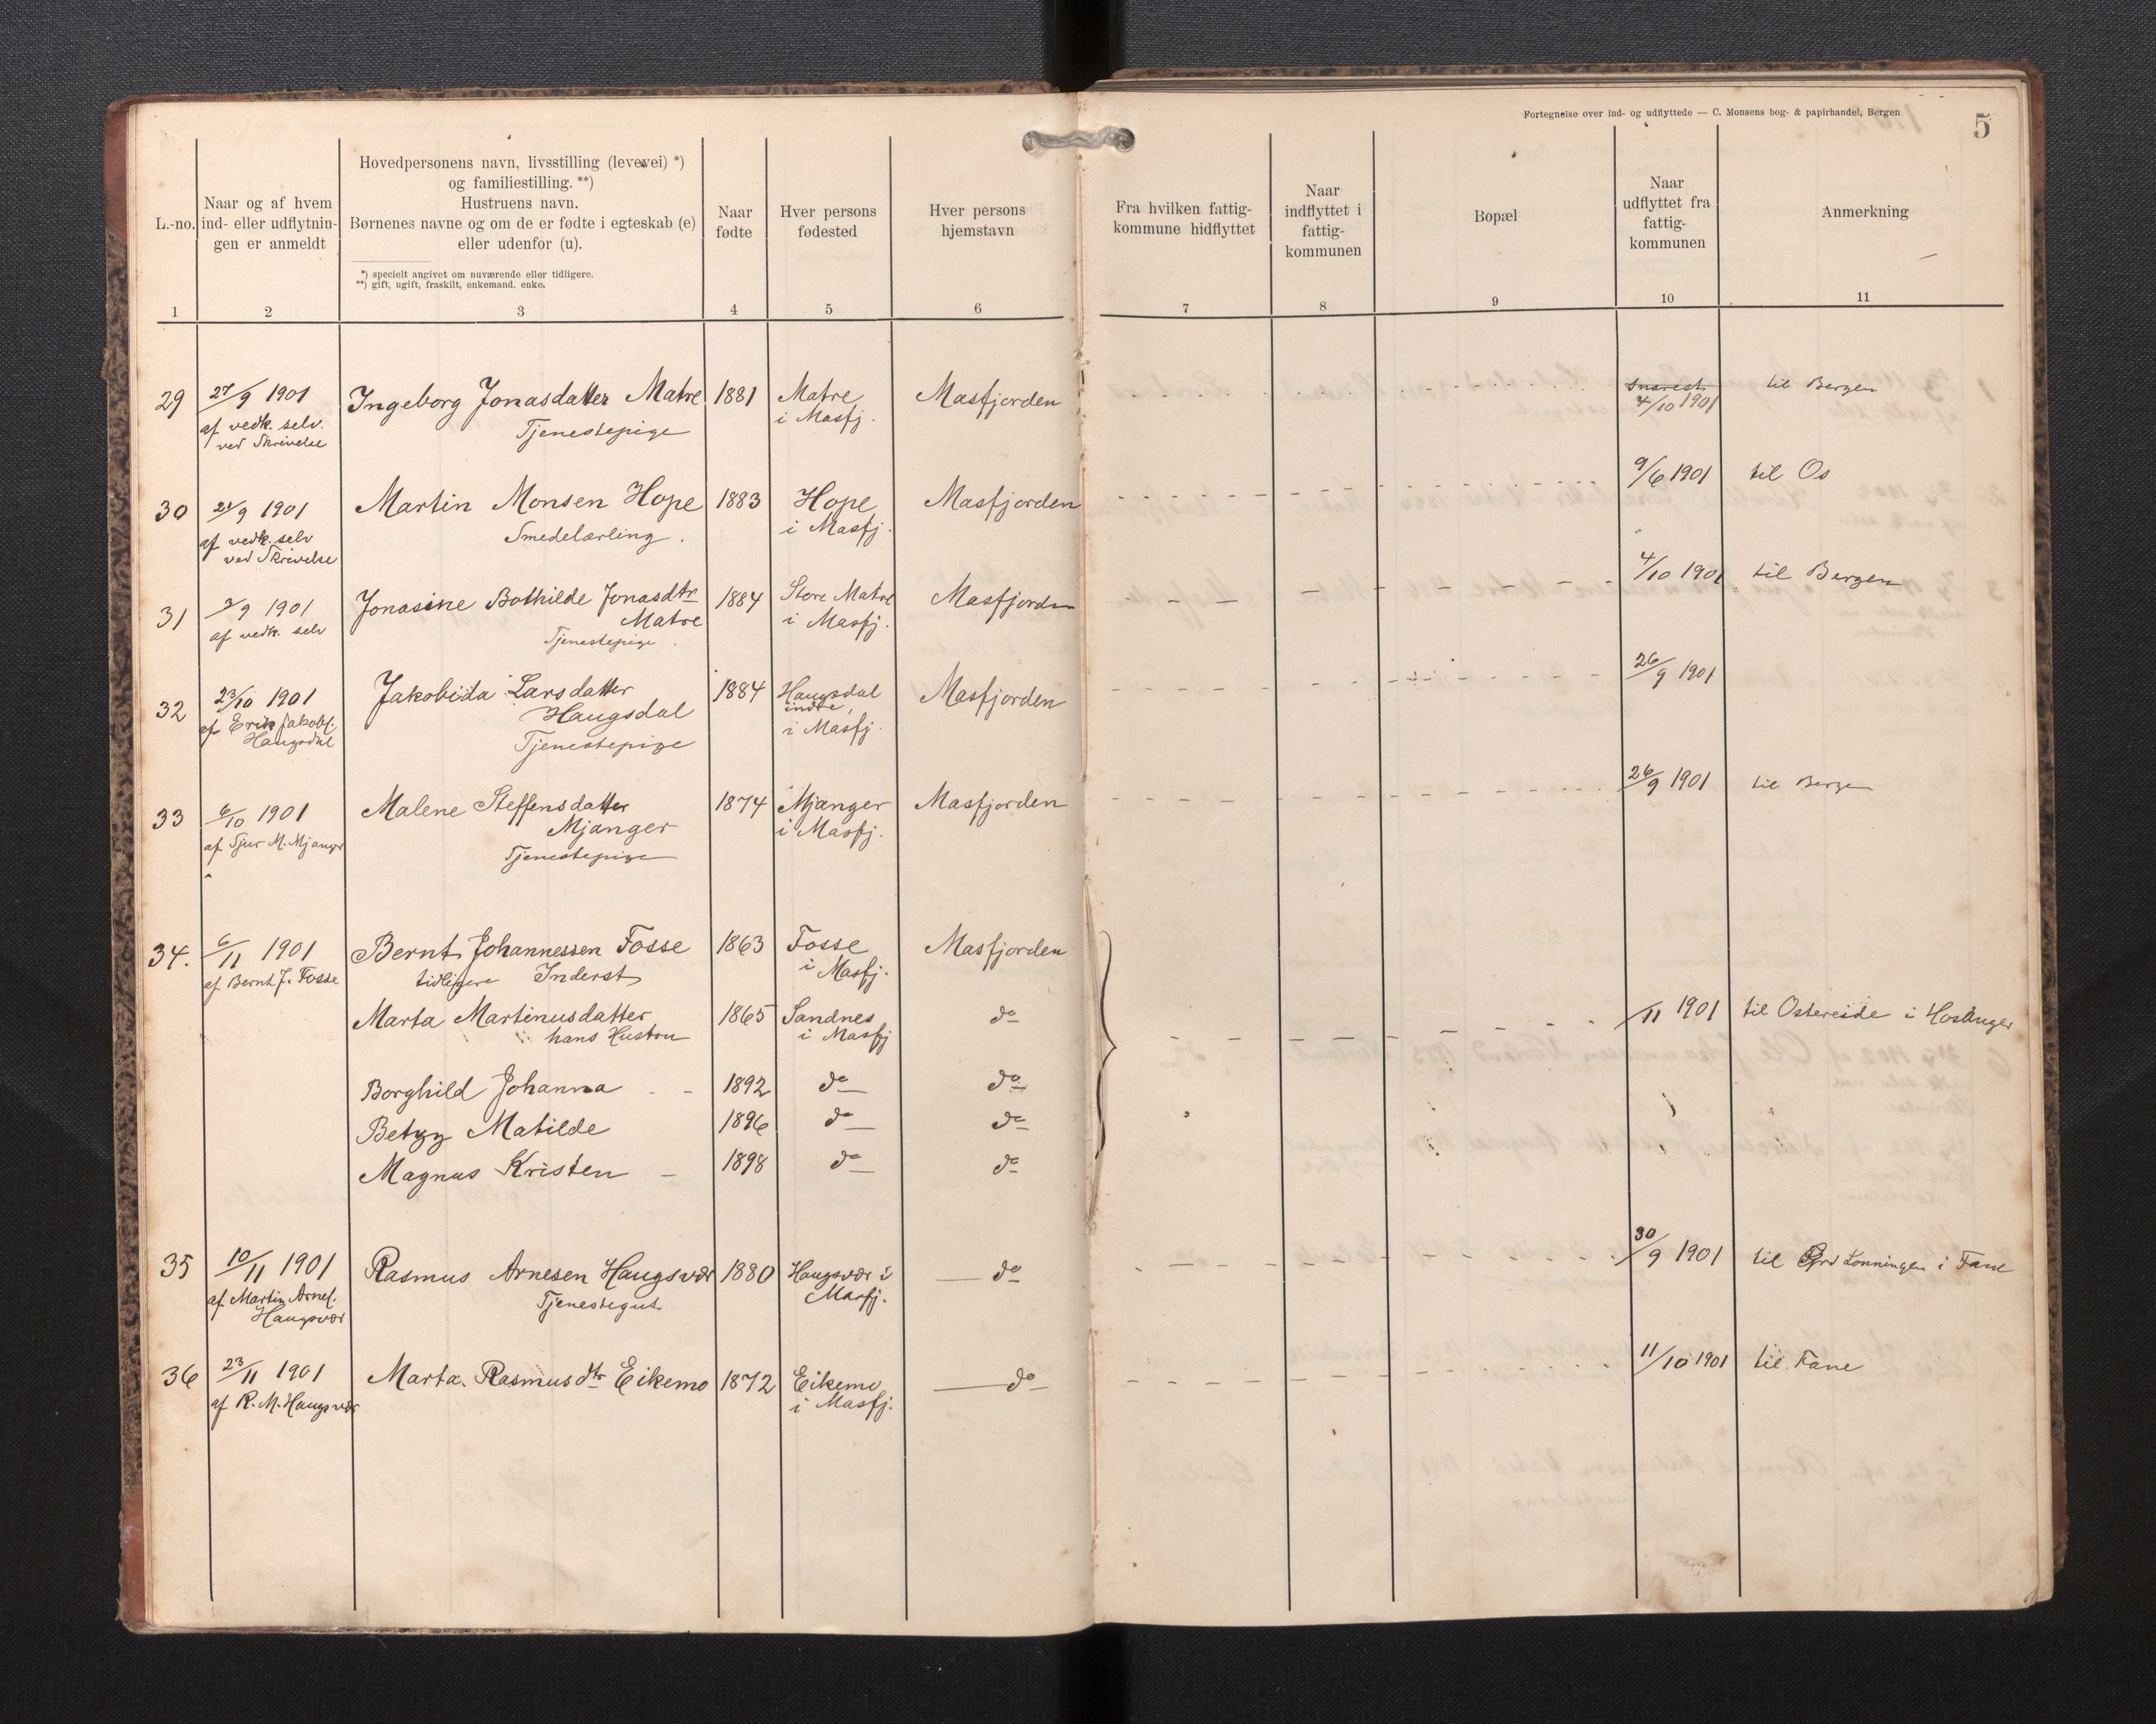 Fortegnelse over ind- og udflyttede — C. Monsens bog- & papirhandel, Bergen
5
L.-no.
Naar og af hvem
ind- eller udflytnin-
gen er anmeldt
Hovedpersonens navn, livsstilling (levevei) *)
og familiestilling. **)
Hustruens navn.
Børnenes navne og om de er fødte i egteskab (e)
eller udenfor (u).
*) specielt angivet om nuværende eller tidligere.
**) gift, ugift, fraskilt, enkemand, enke.
Naar
fødte
Hver persons
fødested
Hver persons
hjemstavn
Fra hvilken fattig-
kommune hidflyttet
Naar
indflyttet i
fattig-
kommunen
Bopæl
Naar
udflyttet fra
fattig-
kommunen
Anmerkning
1 2 3 4 5 6 7 8 9 10 11
29 27/9 1901 Ingeborg Jonasdatter Matre 1881 Matre Masfjorden snarest til Bergen
af vedk. selv. Tjenestepige i Masfj. 4/10 1901
ved Skrivelse
30 21/9 1901 Martin Monsen Hope 1883 Hope Masfjorden 9/6 1901 til Os
af vedk. selv Smedelærling. i Masfj.
ved Skrivelse
31 /9 1901 Jonasine Bothilde Jonasdtr 1884 Store Matre Masfjorden 4/10 1901 til Bergen
af vedk. selv Matre i Masfj.
Tjenestepige.
32 23/10 1901 Jakobida Larsdatter 1884 Haugsdal Masfjorden 26/9 1901
af Erik Jakobs. Haugsdal indre,
Haugsdal Tjenestepige i Masfj.
33 6/10 1901 Malene Steffensdatter 1874 Mjanger Masfjorden 26/9 1901 til Bergen
af Sjur M. Mjanger Mjanger i Masfj.
Tjenestepige
34. 6/11 1901 Bernt Johannessen Fosse 1863 Fosse Masfjorden
af Bernt J. Fosse tidligere Inderst i Masfj.
Marta Martinusdatter 1865 Sandnes do /11 1901 til Ostereide i Hosanger
hans Hustru i Masfj
Borghild Johanna - - 1892 do do
Betzy Matilde 1896 do do
Magnus Kristen - 1898 do do
35 10/11 1901 Rasmus Arnesen Haugsvær 1880 Haugsvær i do 30/9 1901 til Grd Lønningen i Fane
af Martin Arnes. Tjenestegut Masfj.
Haugsvær
36 23/11 1901 Marta Rasmusdtr Eikemo 1872 Eikemo do 11/10 1901 til Fane
af R. M. Haugsvær i Masfj.